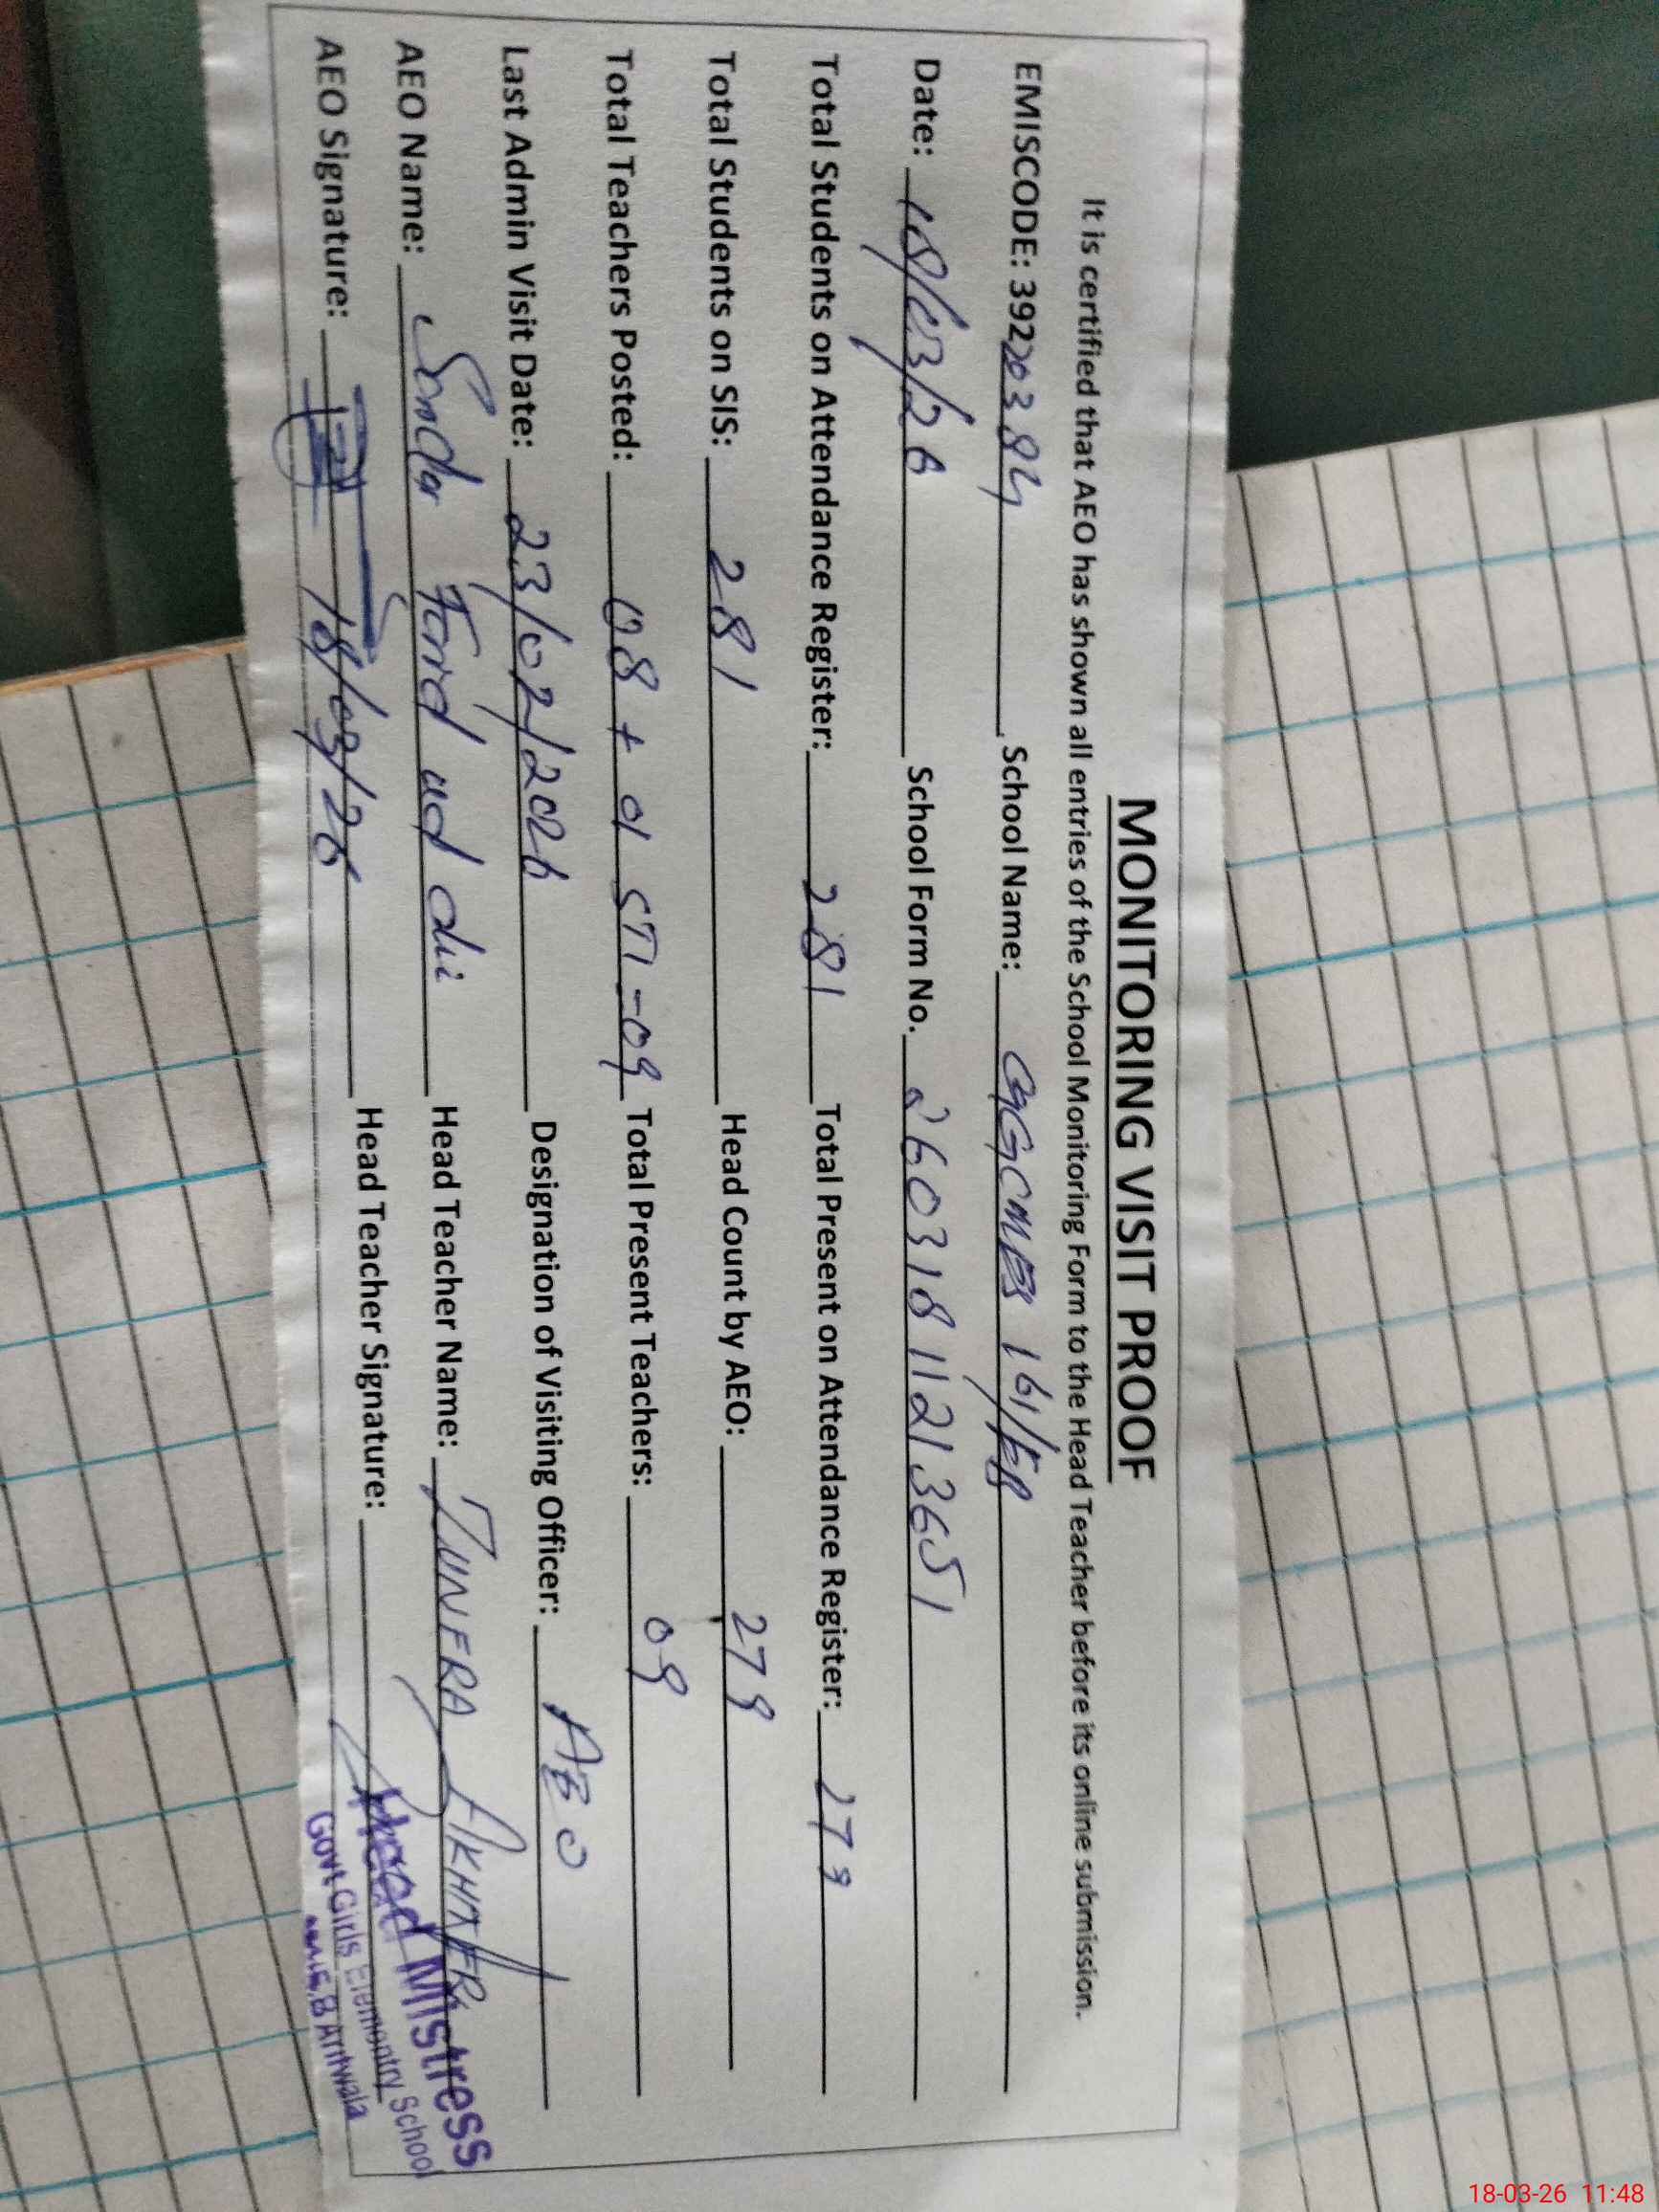 MONITORING VISIT PROOF
It is certified that AEO has shown all entries of the School Monitoring Form to the Head Teacher before its online submission.
EMISCODE: 39220384 School Name: GGCMES 161/EB
Date: 18/03/26 School Form No. 26031811213651
Total Students on Attendance Register: 281 Total Present on Attendance Register: 279
Total Students on SIS: 281 Head Count by AEO: 279
Total Teachers Posted: 08 + 01 STI - 09 Total Present Teachers: 09
Last Admin Visit Date: 23/02/2026 Designation of Visiting Officer: AEO
AEO Name: ud Head Teacher Name: AKHTER
AEO Signature: 18/03/26 Head Teacher Signature:
Head Mistress
Govt Girls Elementry School
18-03-26 11:48